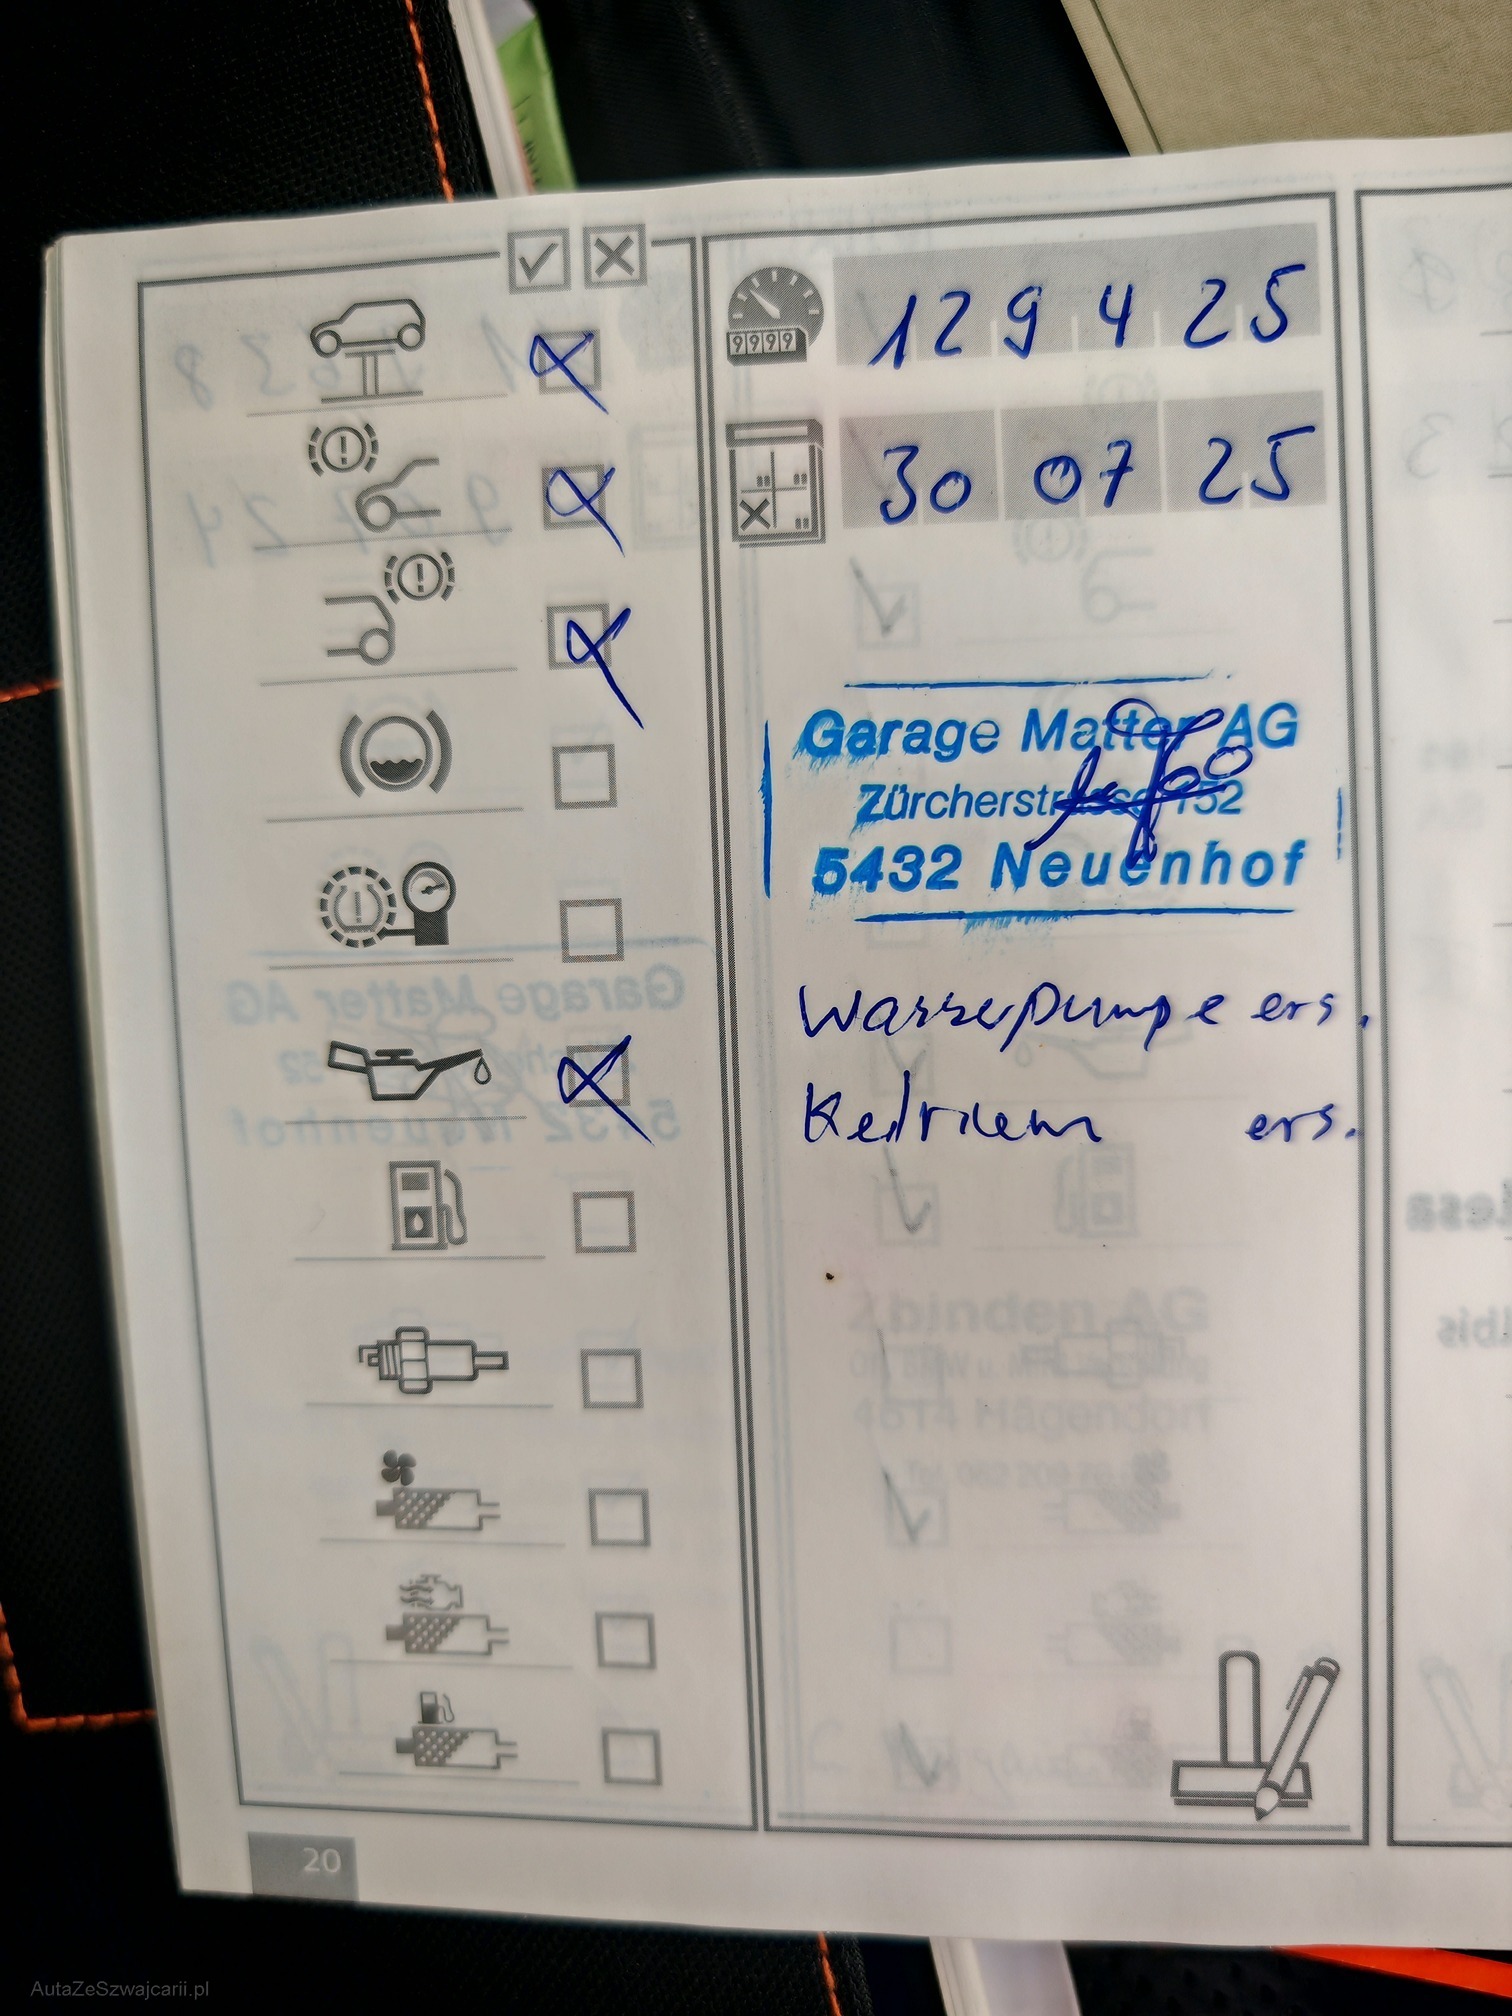 9999
129425
30 07 25
Garage Matter AG
Zürcherstrasse 152
5432 Neuenhof
Wasserpumpe ers.
Keilriem ers.
20
AutaZeSzwajcarii.pl